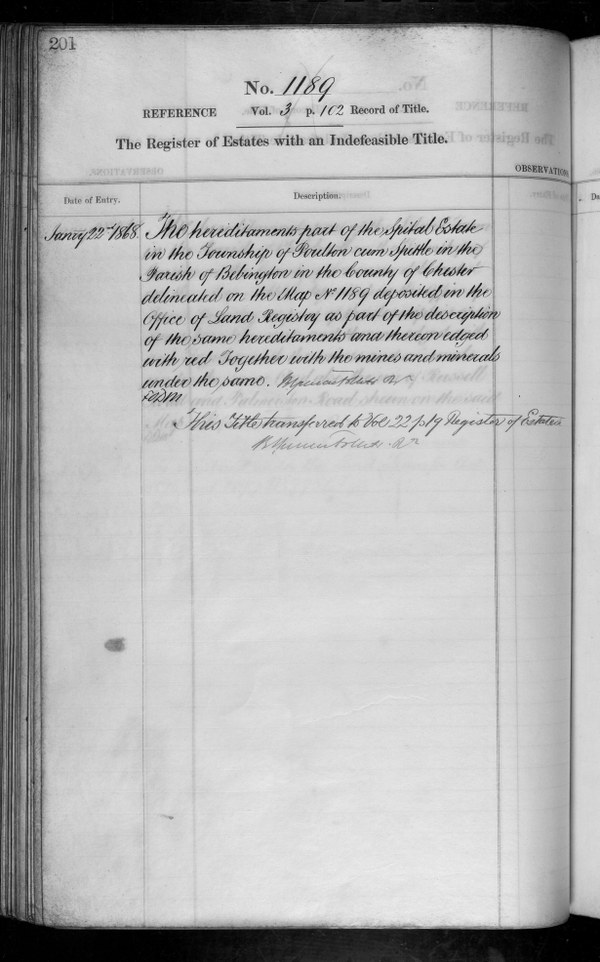 201
No. 1189
REFERENCE Vol. 3 p. 102 Record of Title.
The Register of Estates with an Indefeasible Title.
OBSERVATIONS
Date of Entry.
Description.
Janry 22nd 1868.
The hereditaments part of the Spital Estate
in the Township of Poulton cum Spittle in the
Parish of Bebington in the County of Chester
delineated on the Map No 1189 deposited in the
Office of Land Registry as part of the description
of the same hereditaments and thereon edged
with red Together with the mines and minerals
under the same.
This Title transferred to Vol 22 p 19 Register of Estates